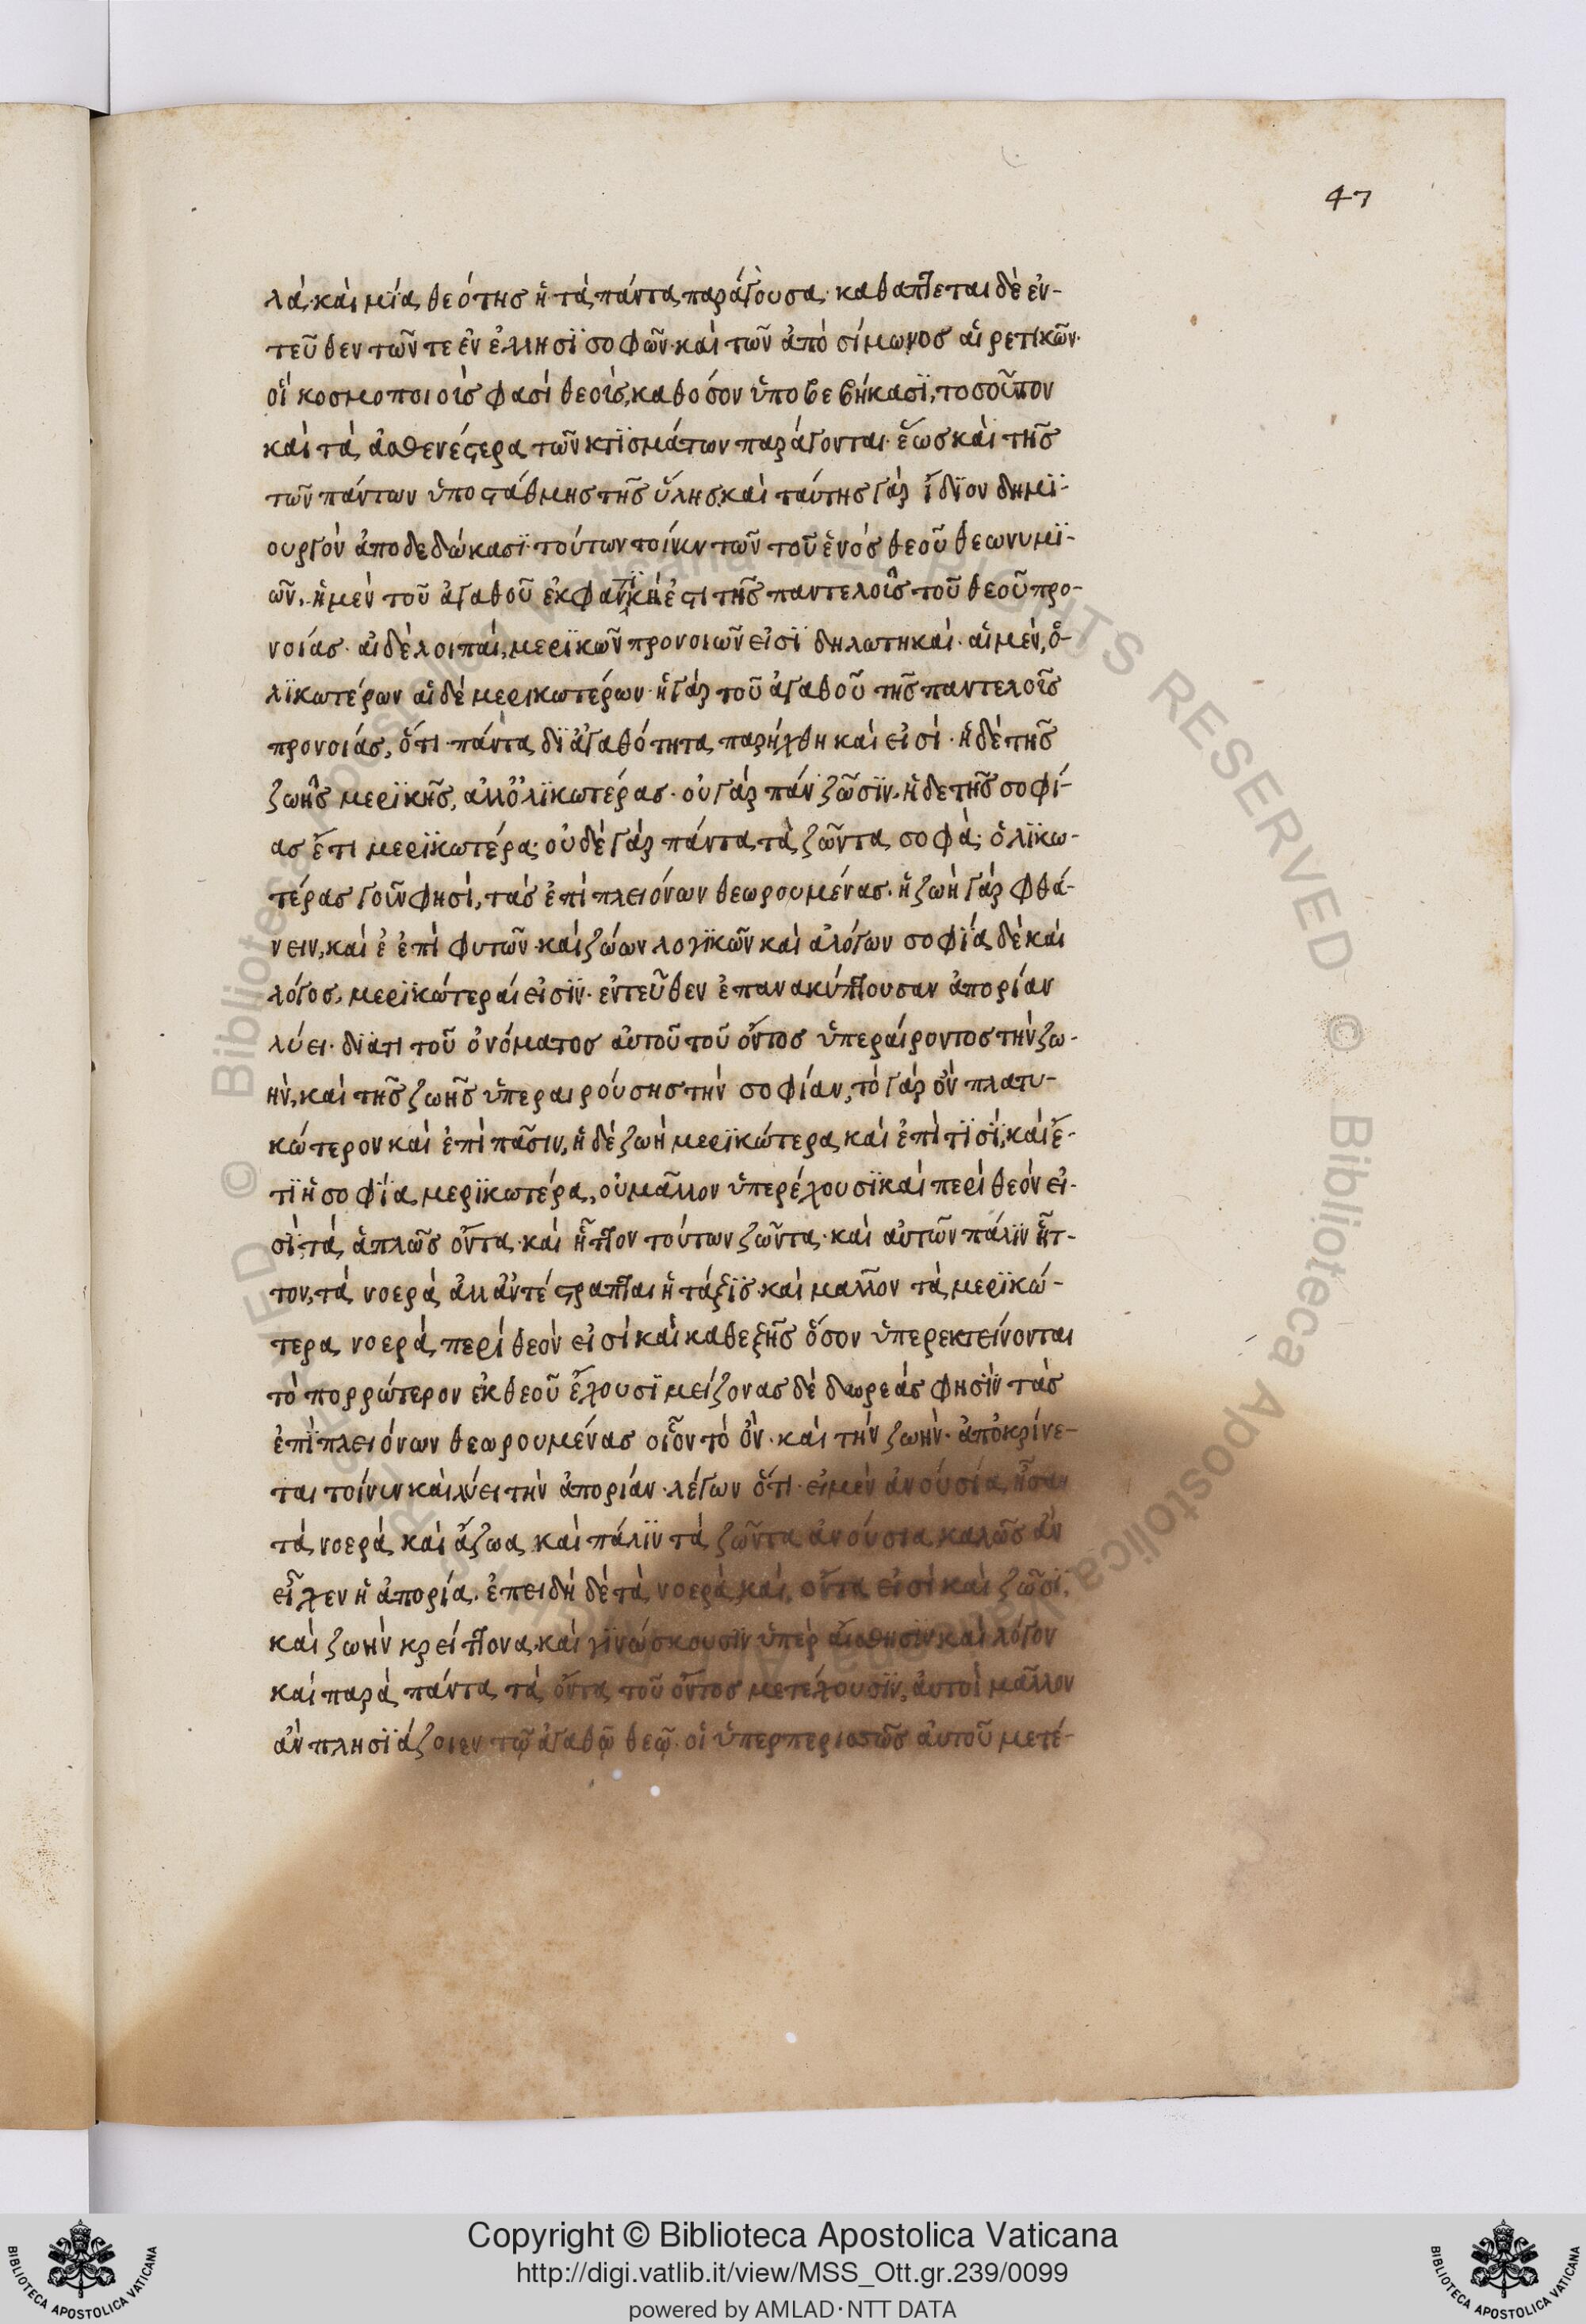 47
λὰ· καὶ μία θεότης ἡ τὰ πάντα παράγουσα· καθάπτεται δὲ ἐν-
τεῦθεν τῶν τε ἐν ἕλλησϊ σοφῶν· καὶ τῶν ἀπὸ σίμωνος αἱρετικῶν·
οἳ κοσμοποιοὶς φασὶ θεοὶς, καθόσον ὑποβεβήκασϊ, τοσοῦτον
καὶ τὰ ἀσθενέστερα τῶν κτϊσμάτων παράγονται· ἕως καὶ τῆς
τῶν πάντων ὑποστάθμης τῆς ὕλης. καὶ ταύτης γὰρ ἴδϊον δημϊ-
ουργὸν ἀποδεδώκασϊ· τούτων τοίνυν τῶν τοῦ ἑνὸς θεοῦ θεωνυμϊ-
ῶν, ἡ μὲν τοῦ ἀγαθοῦ ἐκφαντϊκή ἐστι τῆς παντελοῦς τοῦ θεοῦ προ-
νοίας· αἱ δὲ λοιπαὶ, μερϊκῶν προνοιῶν εἰσϊ δηλωτηκαὶ· αἱ μὲν, ὁ-
λϊκωτέρων αἱ δὲ μερικωτέρων· ἡ γὰρ τοῦ ἀγαθοῦ τῆς παντελοῖς
προνοίας, ὅτι πάντα δϊ ἀγαθότητα παρήχθη καὶ εἰσὶ· ἡ δὲ τῆς
ζωῆς μερϊκῆς, ἀλλ ὁλϊκωτέρας· οὐ γὰρ πάν ζῶσϊν· ἡ δὲ τῆς σοφί-
ας ἔτι μερϊκωτέρα· οὐδὲ γὰρ πάντα τὰ ζῶντα σοφὰ· ὁλϊκω-
τέρας γοῦν φησὶ, τὰς ἐπὶ πλειόνων θεωρουμένας· ἡ ζωὴ γὰρ φθά-
νειν, καὶ ἐ ἐπὶ φυτῶν· καὶ ζώων λογϊκῶν καὶ ἀλόγων σοφϊα δὲ καὶ
λόγος, μερϊκώτεραί εἰσϊν· ἐντεῦθεν ἐπανακύπτουσαν ἀπορίαν
λύει· δϊατι τοῦ ὀνόματος αὐτοῦ τοῦ ὄντος ὑπεραίροντος τὴν ζω-
ὴν, καὶ τῆς ζωῆς ὑπεραιρούσης τὴν σοφίαν, τὸ γὰρ ὂν πλατυ-
κώτερον καὶ ἐπὶ πᾶσιν, ἡ δὲ ζωὴ μερϊκώτερα, καὶ ἐπὶ τϊσϊ, καὶ ἔ-
τϊ ἡ σοφϊα μερϊκωτέρα, οὐ μᾶλλον ὑπερέχουσϊ καὶ περὶ θεὸν εἰ-
σϊ, τὰ ἁπλῶς ὄντα· καὶ ἧττον τούτων ζῶντα· καὶ αὐτῶν πάλϊν ἧτ-
τον, τὰ νοερὰ ἀλλ ἀντέστραπται ἡ τάξϊς· καὶ μαλλον τὰ μερϊκώ-
τερα νοερὰ περὶ θεὸν εἰσὶ καὶ καθεξῆς ὅσον ὑπερεκτείνονται
τὸ πορρώτερον ἐκ θεοῦ ἔχουσϊ μείζονας δὲ δωρεάς φησϊν τὰς
ἐπϊ πλειόνων θεωρουμένας οἷον τὸ ὂν· καὶ τὴν ζωὴν· ἀποκρίνε-
ται τοίνυν καὶ λύει τὴν ἀπορίαν· λέγων ὅτι· εἰ μὲν ἀνούσϊα ἦσαν
τὰ νοερὰ καὶ ἄζωα, καὶ πάλϊν τὰ ζῶντα ἀνούσια, καλῶς ἂν
εἶχεν ἡ ἀπορία· ἐπειδὴ δὲ τὰ νοερὰ καὶ, ὄντα εἰσὶ καὶ ζῶσϊ,
καὶ ζωὴν κρείττονα, καὶ γϊνώσκουσϊν ὑπὲρ αἴσθησϊν καὶ λόγον
καὶ παρὰ πάντα τὰ ὄντα τοῦ ὄντος μετέχουσϊν, αὐτοὶ μᾶλλον
ἂν πλησϊάζοιεν τῷ ἀγαθῷ θεῷ· οἱ ὑπερπερισσῶς αὐτοῦ μετέ-
Copyright © Biblioteca Apostolica Vaticana
http://digi.vatlib.it/view/MSS_Ott.gr.239/0099
powered by AMLAD·NTT DATA